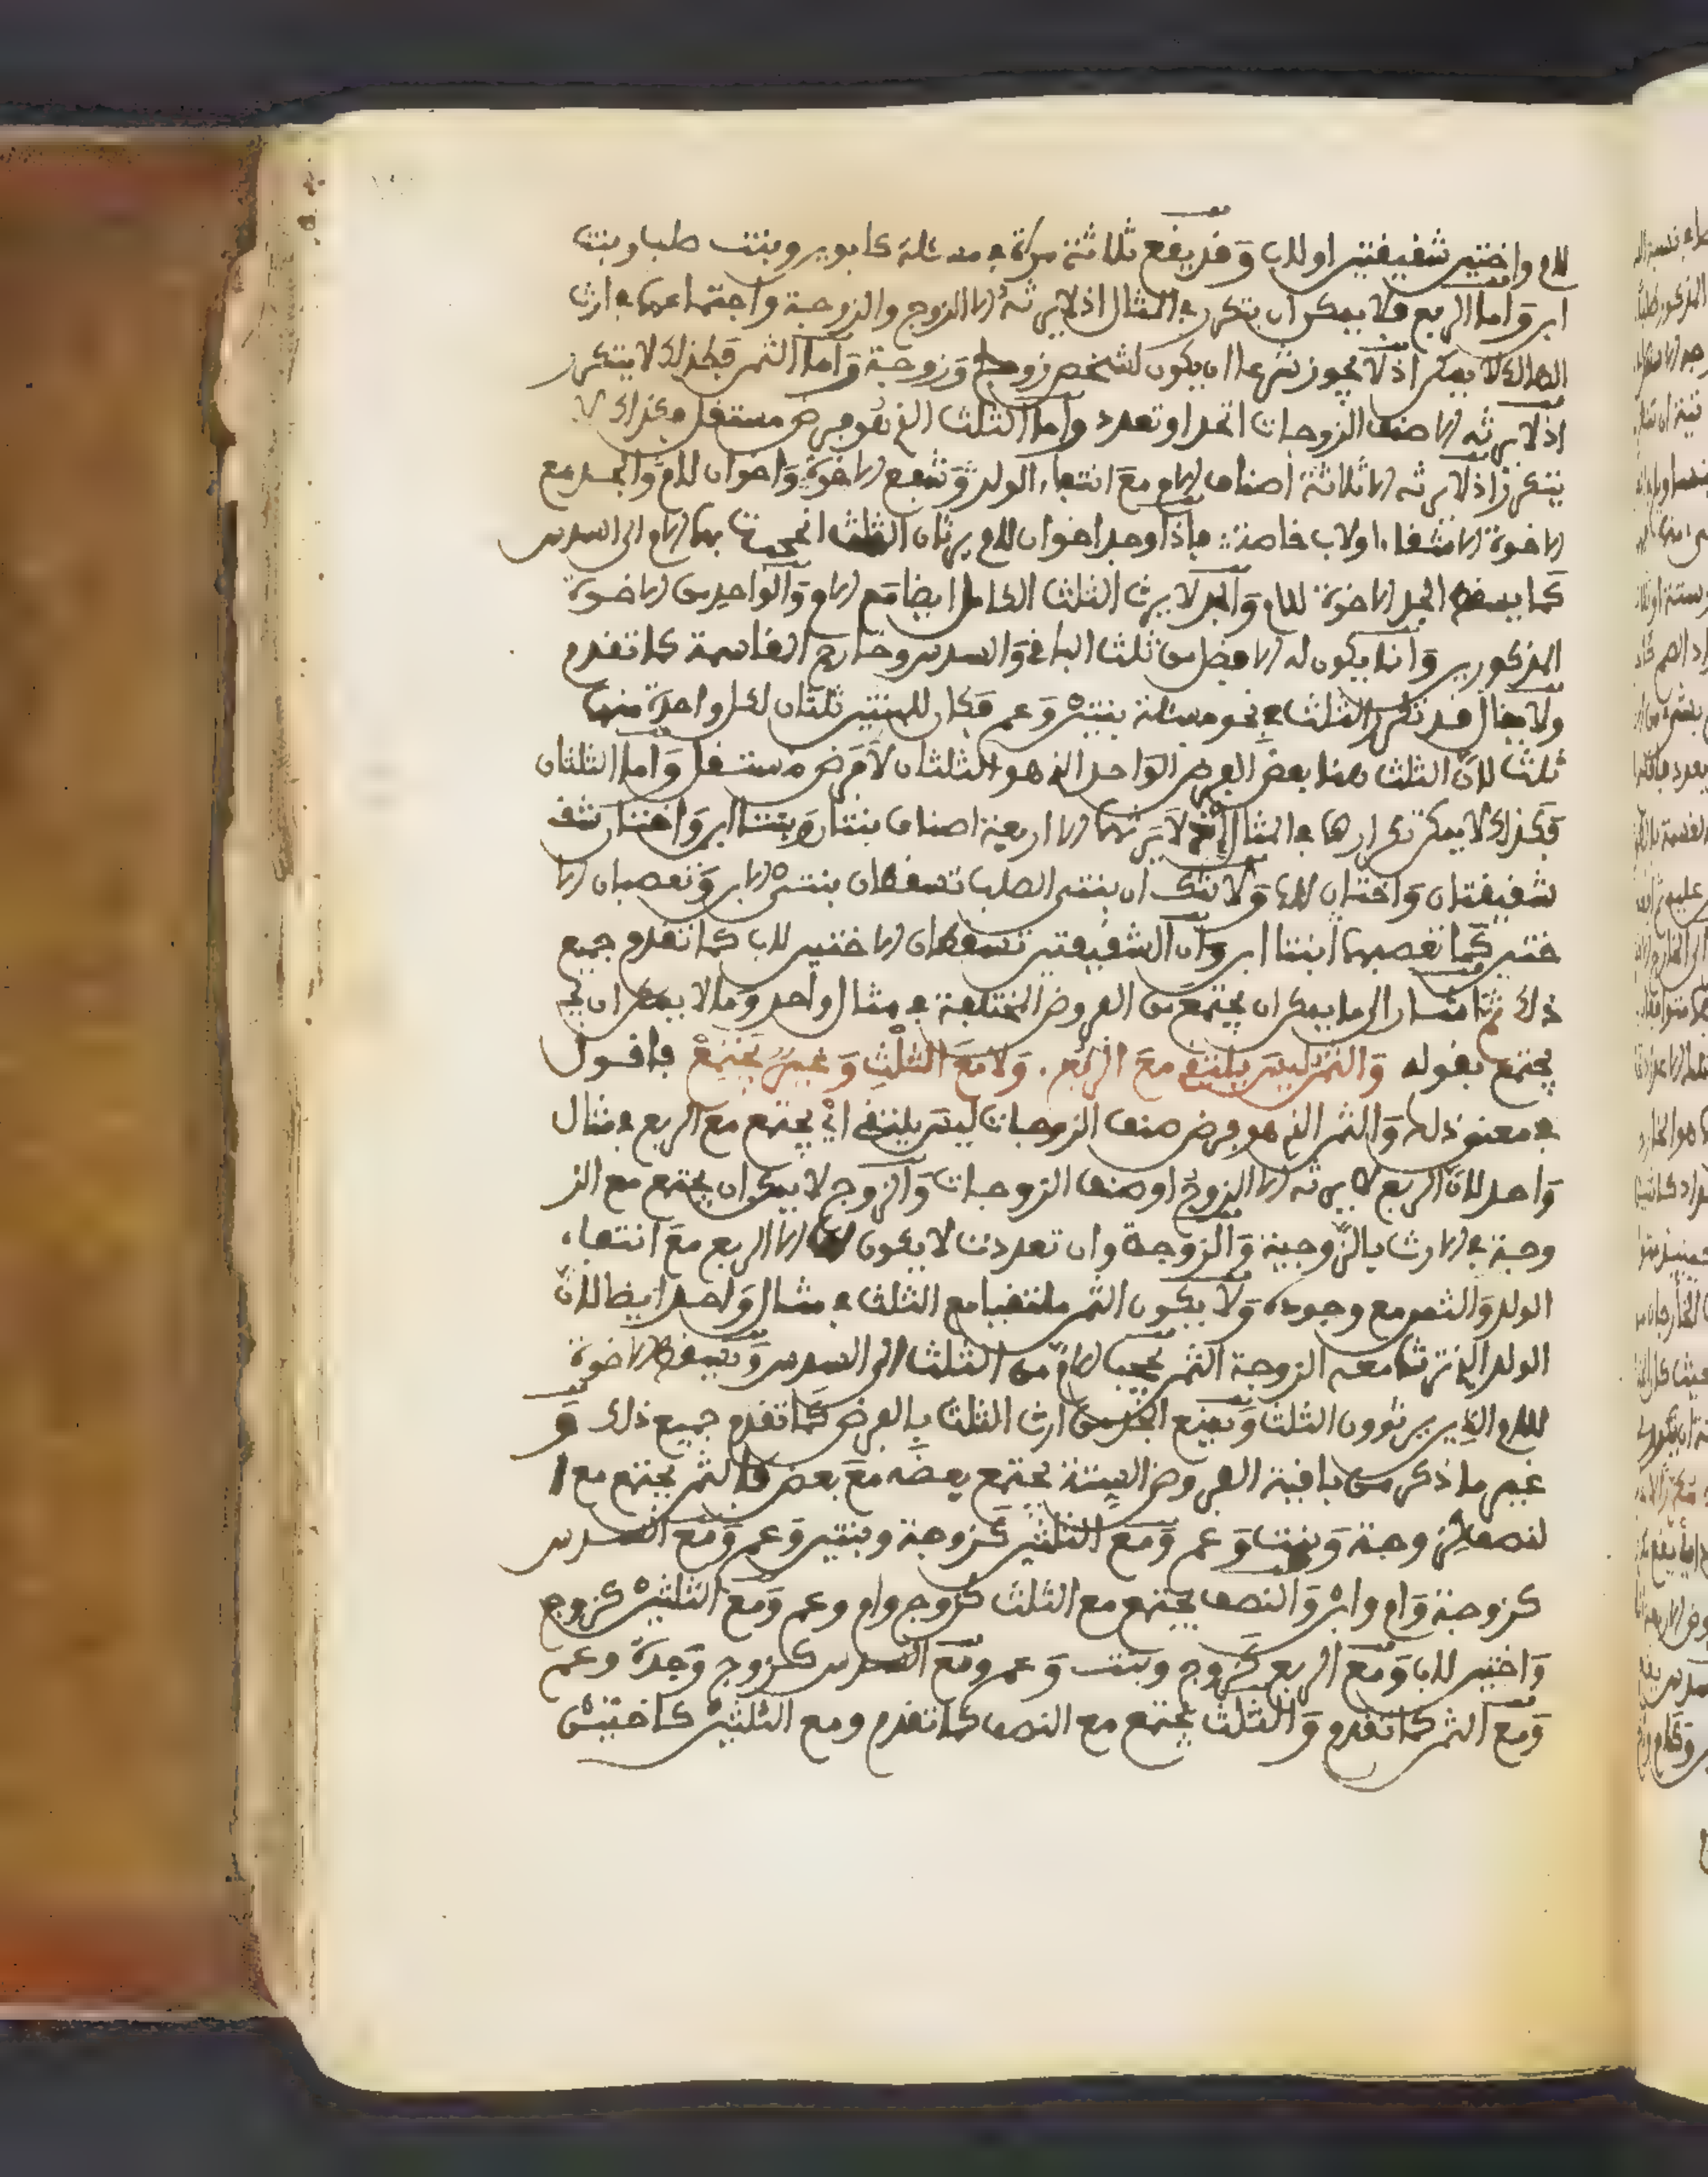 للام واختين شقيقتين او للاب وقد يقع ثلاثة مرة في مسئلة كابوين وبنت صلب وبنت
ابن واما الربع فلا يمكن ان يتكرر في المثال اذ لا يرثه الا الزوج والزوجة واجتماعهما في ارث
الهالك لا يمكن اذ لا يجوز شرعا ان يكون لشخص زوج وزوجة واما الثمن فكذلك لا يتكرر
اذ لا يرثه الا صنف الزوجات اتحد او تعدد واما الثلث الذي هو فرض مستقل فكذلك لا
يتكرر اذ لا يرثه الا ثلاثة اصناف الام مع انتفاء الولد وجمع الاخوة واخوان للام والجد مع
الاخوة الاشقاء او لاب خاصة فاذا وجد اخوان للام يرثان الثلث انحجبت بهما الام الى السدس
كما يسقط الجد الاخوة للام والجد لا يرث الثلث الكامل ايضا مع الام والواحد من الاخوة
المذكورين وانما يكون له الافضل من ثلث الباقي والسدس وخارج المقاسمة كما تقدم
ولا يقال قد تكرر الثلث في نحو مسئلة بنتين وعم فكان للبنتين ثلثان لكل واحدة منهما
ثلث لان الثلث هنا بعض الفرض الواحد الذي هو الثلثان لا فرض مستقل واما الثلثان
فكذلك لا يمكن تكرارهما في المثال اذ لا يرثهما الا اربعة اصناف بنتان وبنتا ابن واختان شق
شقيقتان واختان للاب ولا شك ان بنتي الصلب تسقطان بنتي الابن وتعصبان الا
ختين كما تعصبهما ابنتا ابن وان الشقيقتين تسقطان الاختين للاب كما تقدم جميع
ذلك ثم اشار الى ما يمكن ان يجتمع من الفروض المختلفة في مثال واحد وما لا يمكن ان يج
يجتمع بقوله والثمن ليس يلتقي مع الربع . ولا مع الثلث وغير يجتمع فاقول
في معنى ذلك والثمن الذي هو فرض صنف الزوجات ليس يلتقي اي يجتمع مع الربع في مثال
واحد لان الربع لا يرثه الا الزوج او صنف الزوجات والزوج لا يمكن ان يجتمع مع الز
وجة في الارث بالزوجية والزوجة وان تعددت لا يكون لها الا الربع مع انتفاء
الولد والثمن مع وجوده ولا يكون الثمن ملتقيا مع الثلث في مثال واحد ايضا لان
الولد الذي ترث معه الزوجة الثمن يحجب الام من الثلث الى السدس ويسقط الاخوة
للام الذين يرثون الثلث ويمنع الجد من ارث الثلث بالفرض كما تقدم جميع ذلك و
غير ما ذكر من باقية الفروض الستة يجتمع بعضه مع بعض فالثمن يجتمع مع ا
لنصف كزوجة وبنت وعم ومع الثلثين كزوجة وبنتين وعم ومع السدس
كزوجة وام وابن والنصف يجتمع مع الثلث كزوج وام وعم ومع الثلثين كزوج
واختين للاب ومع الربع كزوج وبنت وعم ومع السدس كزوج وجدة وعم
ومع الثمن كما تقدم والثلث يجتمع مع النصف كما تقدم ومع الثلثين كاختين